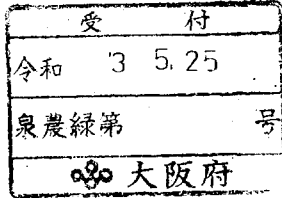 受付
令和 '3 5. 25
泉農緑第 号
大阪府